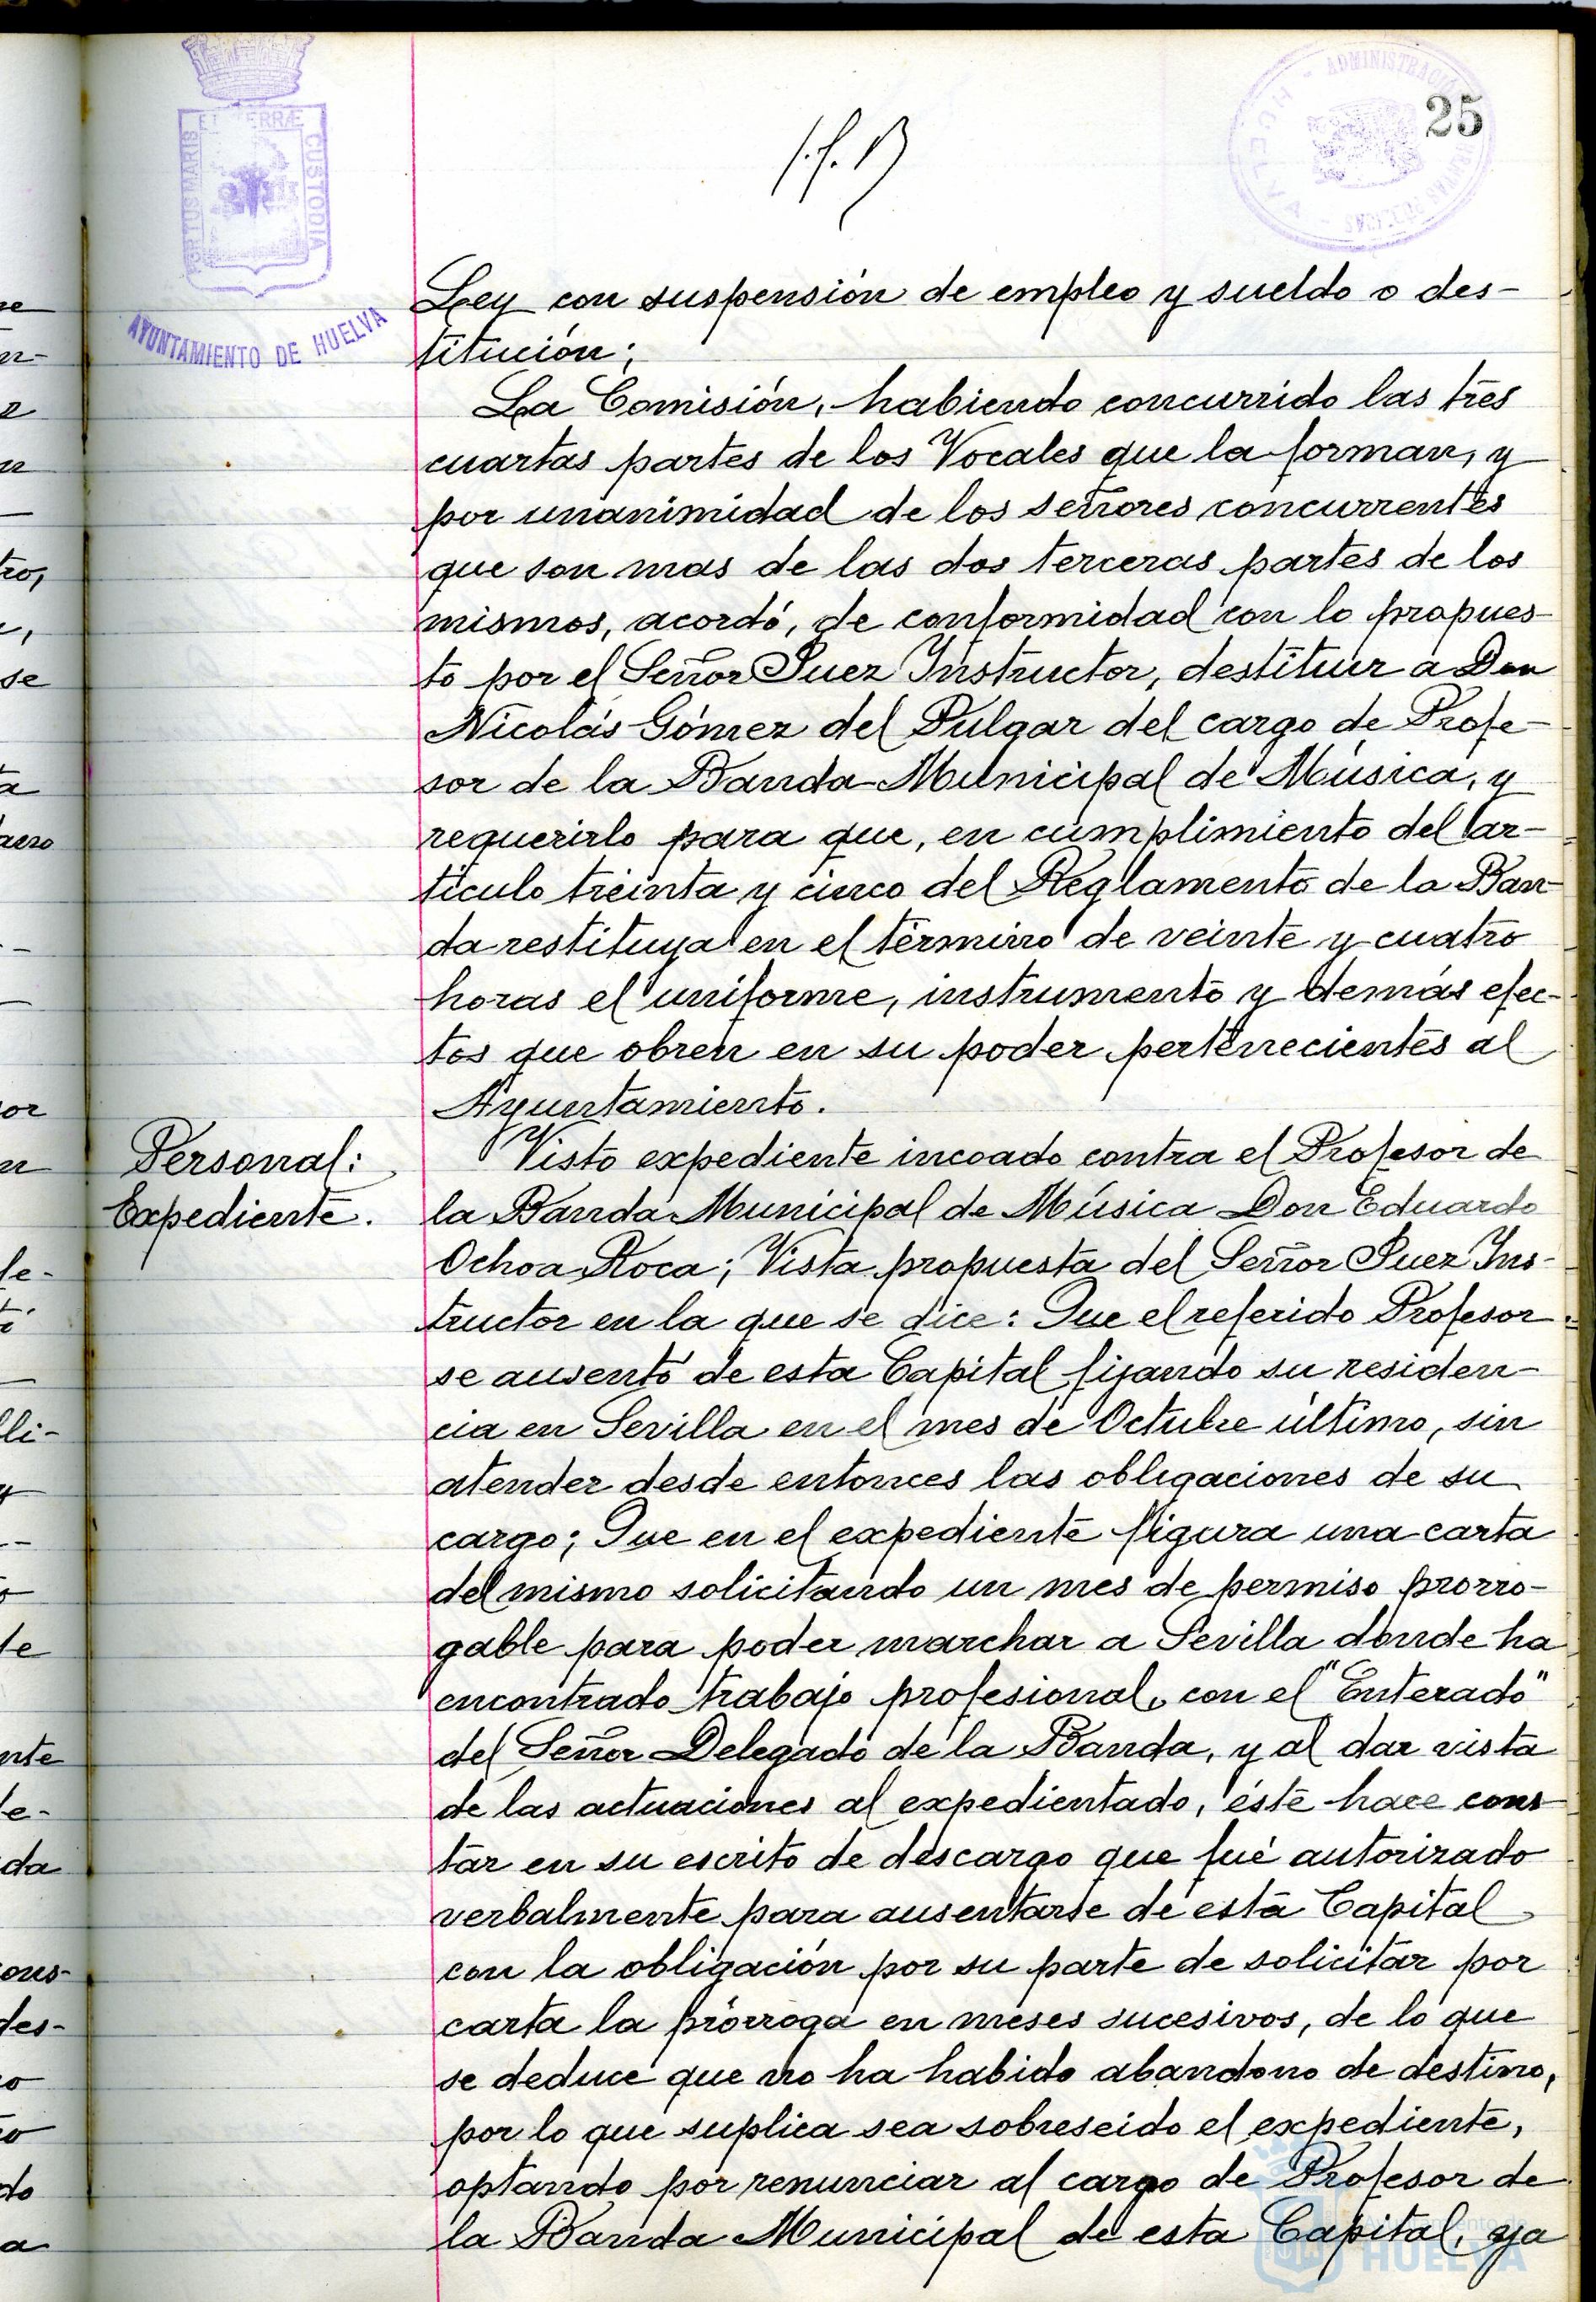 25
PORTUS MARIS ET TERRÆ CUSTODIA
AYUNTAMIENTO DE HUELVA
ADMINISTRACIÓN
HUELVA
Ley con suspensión de empleo y sueldo o des-
titución;
La Comisión, habiendo concurrido las tres
cuartas partes de los Vocales que la forman, y
por unanimidad de los señores concurrentes
que son mas de las dos terceras partes de los
mismos, acordó, de conformidad con lo propues-
to por el Señor Juez Instructor, destituir a Don
Nicolás Gómez del Pulgar del cargo de Profe-
sor de la Banda Municipal de Música, y
requerirlo para que, en cumplimiento del ar-
tículo treinta y cinco del Reglamento de la Ban-
da restituya en el término de veinte y cuatro
horas el uniforme, instrumento y demás efec-
tos que obren en su poder pertenecientes al
Ayuntamiento.
Personal:
Expediente.
Visto expediente incoado contra el Profesor de
la Banda Municipal de Música Don Eduardo
Ochoa Roca; Vista propuesta del Señor Juez Ins-
tructor en la que se dice: Que el referido Profesor
se ausentó de esta Capital fijando su residen-
cia en Sevilla en el mes de Octubre último, sin
atender desde entonces las obligaciones de su
cargo; Que en el expediente figura una carta
del mismo solicitando un mes de permiso prorro-
gable para poder marchar a Sevilla donde ha
encontrado trabajo profesional, con el "Enterado"
del Señor Delegado de la Banda, y al dar vista
de las actuaciones al expedientado, éste hace cons-
tar en su escrito de descargo que fué autorizado
verbalmente para ausentarse de esta Capital
con la obligación por su parte de solicitar por
carta la prórroga en meses sucesivos, de lo que
se deduce que no ha habido abandono de destino,
por lo que suplica sea sobreseido el expediente,
optando por renunciar al cargo de Profesor de
la Banda Municipal de esta Capital, ya
Ayuntamiento de
HUELVA